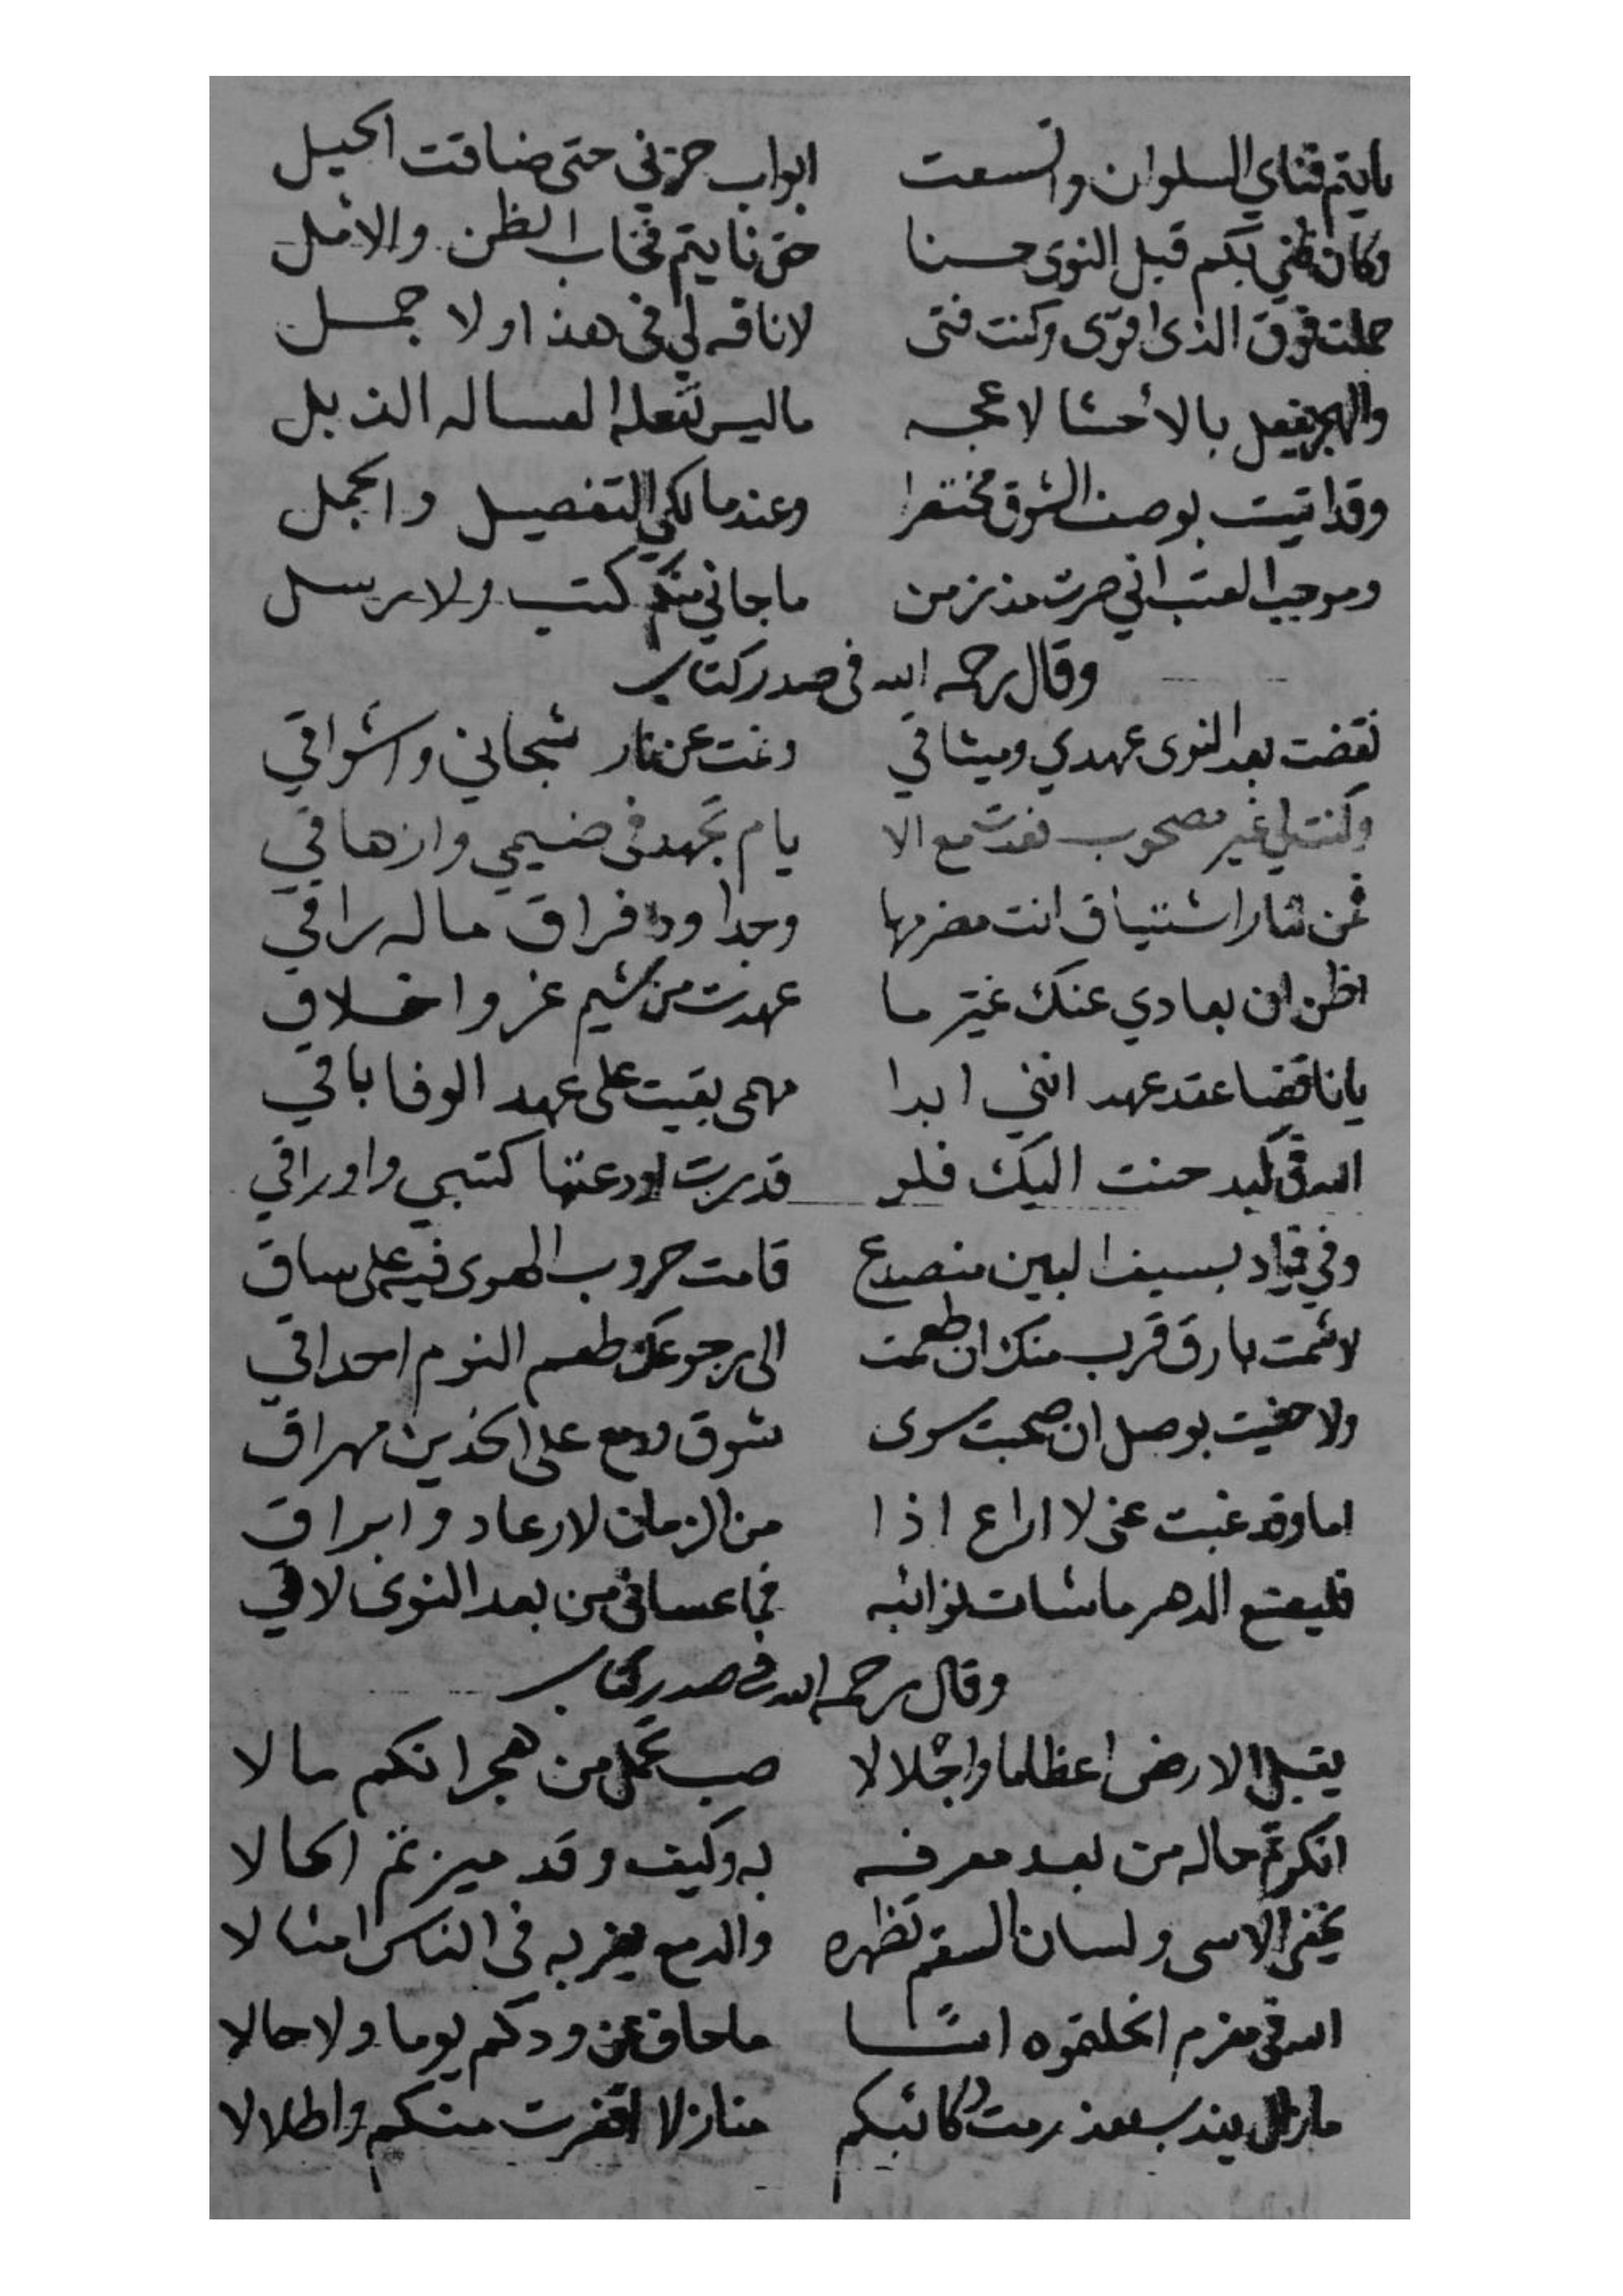 نايتم فناي السلوان واتسعت ابواب حزني حتى ضاقت الحيل
وكان ظني بكم قبل النوى حسنا حتى نايتم فخاب الظن والامل
حملت فوق الذي اقوى وكنت فتى لا ناقه لي في هذا ولا جمل
والهجر يفعل بالأحشا لا عجب ما ليس تفعله العساله الذبل
وقد اتيت بوصف الشوق مختصرا وعندما لكي التفصيل والجمل
وموجب العتب اني صرت مذ زمن ما جاني منكم كتب ولا رسل
وقال رحمه الله في صدر كتاب
نقضت بعد النوى عهدي وميثاقي ونمت عن نار شجاني واشواقي
وكنت لي غير مصحوب نعدت مع الا يام تجهد في ضيمي وازهاقي
فمن لنار اشتياق انت مضرمها وجدا ودا فراق ماله راقي
اظن ان بعادي عنك غير ما عهدت من شيم غر واخلاق
يا ناقضا عقد عهد انني ابدا مهمى بقيت على عهد الوفا باقي
الله في كبد حنت اليك فلو قدرت اودعتها كتبي واوراقي
وفي فواد بسيف البين منصدع قامت حروب الهوى فيه على ساق
لا شمت بارق قرب منك ان طعمت الى رجوعك طعم النوم احداقي
ولا حظيت بوصل ان صحبت سوى شوق ودمع على الخدين مهراق
اما وقد غبت عني لا اراع اذا من الزمان لارعاد وابراق
فليصنع الدهر ما شات نوائبه فما عساني من بعد النوى لاقي
وقال رحمه الله في صدر كتاب
يقبل الارض اعظاما واجلالا صب تحمل من هجرانكم ما لا
انكرتم حاله من بعد معرفه به وكيف وقد ميزتم الحالا
يخفي الاسى ولسان السقم تظهره والدمع يضربه في الناس امثالا
الله في مغرم انحلتموه اسًا ما حاد عن ودكم يوما ولا حالا
ما زال يندب بعد رمت ركائبكم منازلا اقفرت منكم واطلالا